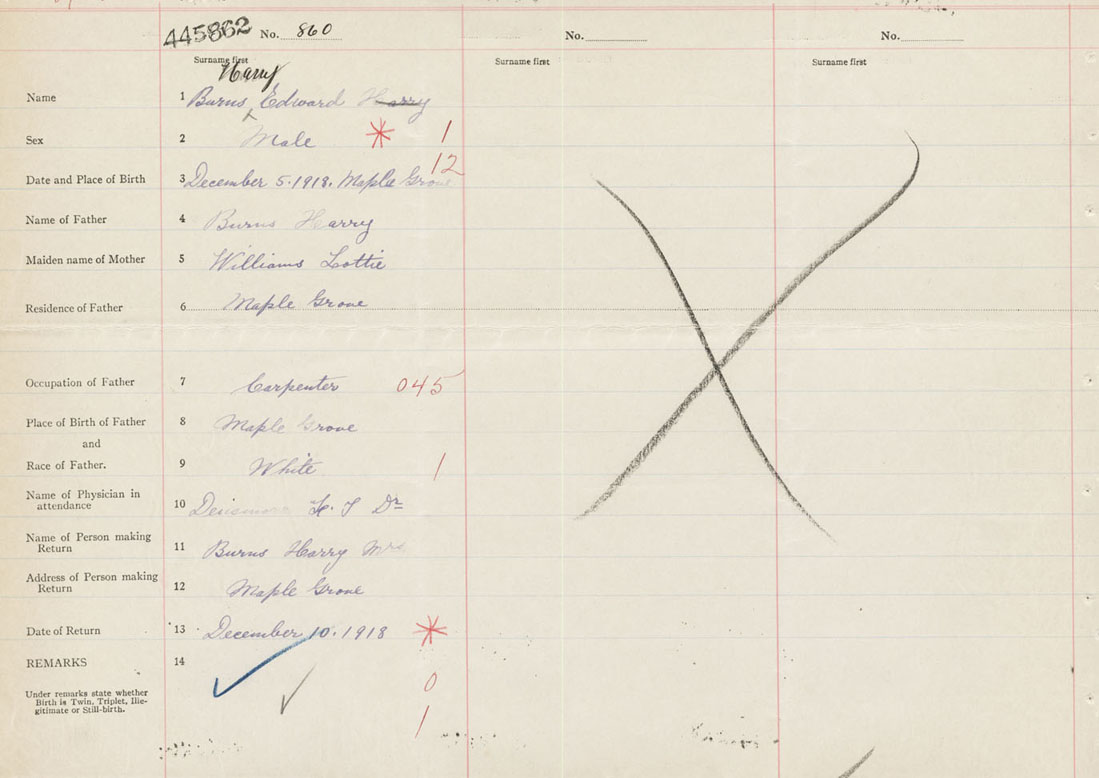 445862 No. 860 No. No.
Surname first Surname first Surname first
Harry
Name 1 Burns, Edward Harry
Sex 2 Male * 1
12
Date and Place of Birth 3 December 5. 1918. Maple Grove
Name of Father 4 Burns Harry
Maiden name of Mother 5 Williams Lottie
Residence of Father 6 Maple Grove
Occupation of Father 7 Carpenter 045
Place of Birth of Father 8 Maple Grove
and
Race of Father. 9 White 1
Name of Physician in
attendance 10 Dr
Name of Person making
Return 11 Burns Harry Mrs
Address of Person making
Return 12 Maple Grove
Date of Return 13 December 10. 1918 *
REMARKS 14
Under remarks state whether
Birth is Twin, Triplet, Ille-
gitimate or Still-birth.
0
1